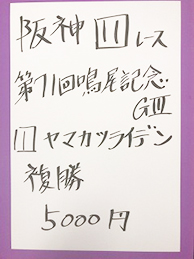 阪神 11 レース
第71回鳴尾記念
GⅢ
11 ヤマカツライデン
複勝
5000円